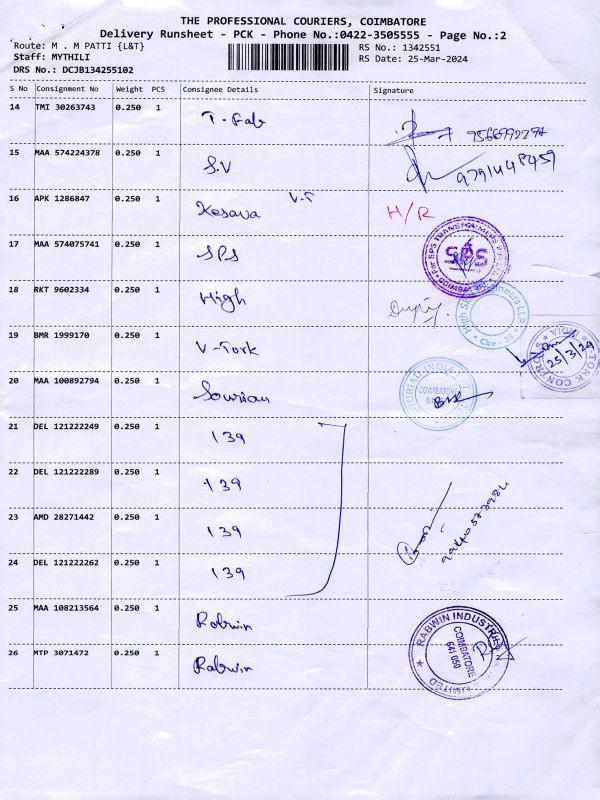 THE PROFESSIONAL COURIERS, COIMBATORE
Delivery Runsheet - PCK - Phone No.:0422-3505555 - Page No.:2
Route: M . M PATTI {L&T}
RS No.: 1342551
Staff: MYTHILI
RS Date: 25-Mar-2024
DRS No.: DCJB134255102
S No Consignment No Weight PCS Consignee Details Signature
14 TMI 30263743 0.250 1 T-Fab
15 MAA 574224378 0.250 1 S.V 9791448459
16 APK 1286847 0.250 1 Kesava V-T H/R
17 MAA 574075741 0.250 1 SPS
For SPS TRANSFORMERS
SPS
COIMBATORE
18 RKT 9602334 0.250 1 High
LLP
Cbe - 35
19 BMR 1999170 0.250 1 V-Tork
25/3/24
TORK CONTROLS INDIA
20 MAA 100892794 0.250 1 Souriau
SOURIAU INDIA
COIMBATORE
21 DEL 121222249 0.250 1 139
22 DEL 121222289 0.250 1 139
23 AMD 28271442 0.250 1 139
24 DEL 121222262 0.250 1 139
25 MAA 108213564 0.250 1 Rabwin
26 MTP 3071472 0.250 1 Rabwin
RABWIN INDUSTRIES
COIMBATORE
641 050
LIMITED